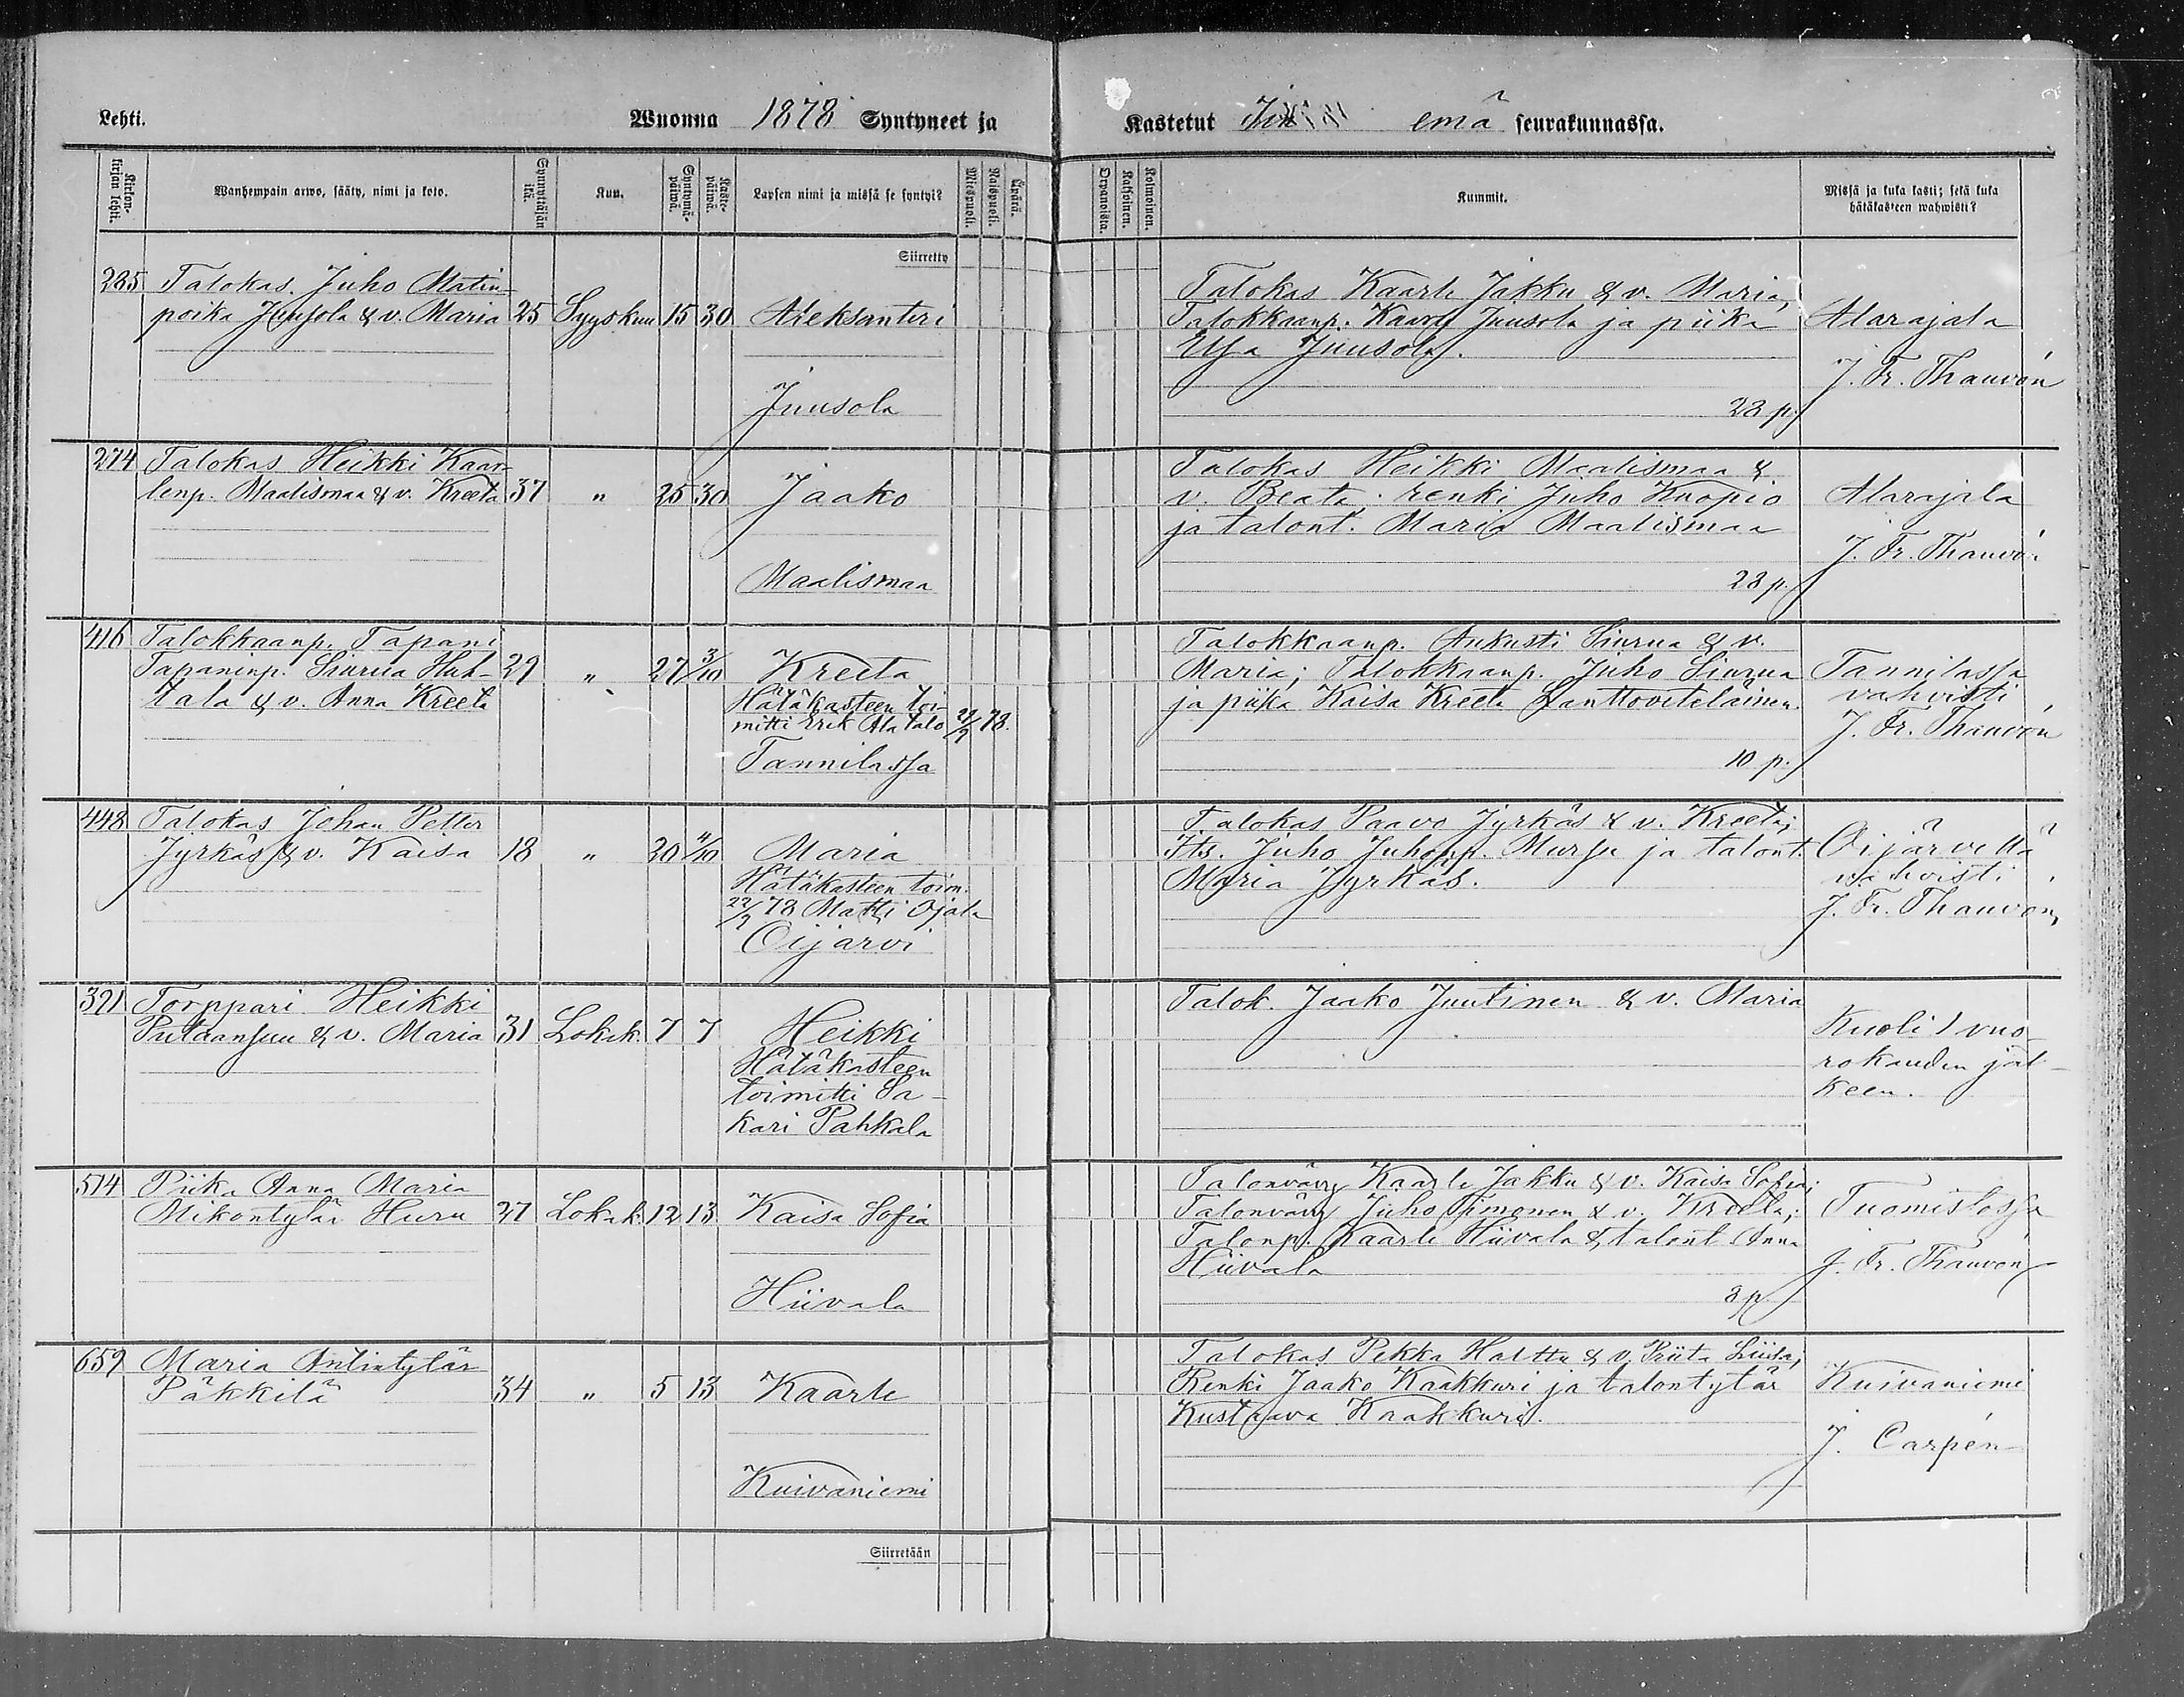 Lehti. Wuonna 1878 Syntyneet ja Kastetut Iin emä seurakunnassa.
Kirkonkirjan lehti. Wanhempain arwo, sääty, nimi ja koto. Synnyttäjän ikä. Kuu. Syntymäpäiwä. Kastepäiwä. Lapsen nimi ja missä se syntyi? Miespuoli. Waispuoli. Äpärä. Orvanoista. Kaksoinen. Kolmoinen. Kummit. Missä ja kuka kasti; sekä kuka hätäkasteen wahwisti?
Siirretty
285 Talokas. Juho Matin-
poika Juusola & v. Maria 25 Syyskuu 15 30 Aleksanteri
Juusola
Talokas Kaarle Jakku & v. Maria,
Talokkaanp. Kaarle Juusola ja piika
Ulja Juusola.
28 p.
Alarajala
J. Fr. Thauvón
274 Talokas Heikki Kaar-
lenp. Maalismaa & v. Kreeta 37 " 25 30 Jaako
Maalismaa
Talokas Heikki Maalismaa &
v. Beata; renki Juho Kuopio
ja talont. Maria Maalismaa
28 p.
Alarajala
J. Fr. Thauvón
416 Talokkaanp. Tapani
Tapaninp. Siurua Huh-
tala & v. Anna Kreeta 29 " 27 3/10 Kreeta
Hätäkasteen toi-
mitti Erik Alatalo 27/9 78.
Tannilassa
Talokkaanp. Aukusti Siurua & v.
Maria; Talokkaanp. Juho Siurua
ja piika Kaisa Kreeta Lanttoveteläinen.
10 p.
Tannilassa
vahvisti
J. Fr. Thauvón
448 Talokas Johan Petter
Jyrkäs & v. Kaisa 18 " 20 4/10 Maria
Hätäkasteen toim.
22/9 78 Matti Ojala
Oijarvi
Talokas Paavo Jyrkäs & v. Kreeta;
Its. Juho Juhonp. Mursu ja talont.
Maria Jyrkäs.
Oijärvellä
vahvisti
J. Fr. Thauvón,
321 Torppari Heikki
Putaansuu & v. Maria 31 Lokak. 7 7 Heikki
Hätäkasteen
toimitti Sa-
kari Pahkala
Talok. Jaako Juutinen & v. Maria
Kuoli 1 vuo
rokauden jäl-
keen.
514 Piika Anna Maria
Mikontytär Huru 27 Lokak. 12 13 Kaisa Sofia
Hiivala
Talonvävy Kaarle Jakku & v. Kaisa Sofia;
Talonvävy Juho Timonen & v. Kreeta;
Talonp. Kaarle Hiivala & talont Anna
Hiivala
3 p.
Tuomistossa
J. Fr. Thauvón
659 Maria Antintytär
Päkkilä 34 " 5 13 Kaarle
Kuivaniemi
Talokas Pekka Harttu & v. Priita Liisa;
Renki Jaako Kaakkuri ja talontytär
Kustaava Kaakkuri.
Kuivaniemi
J. Carpén
Siirretään